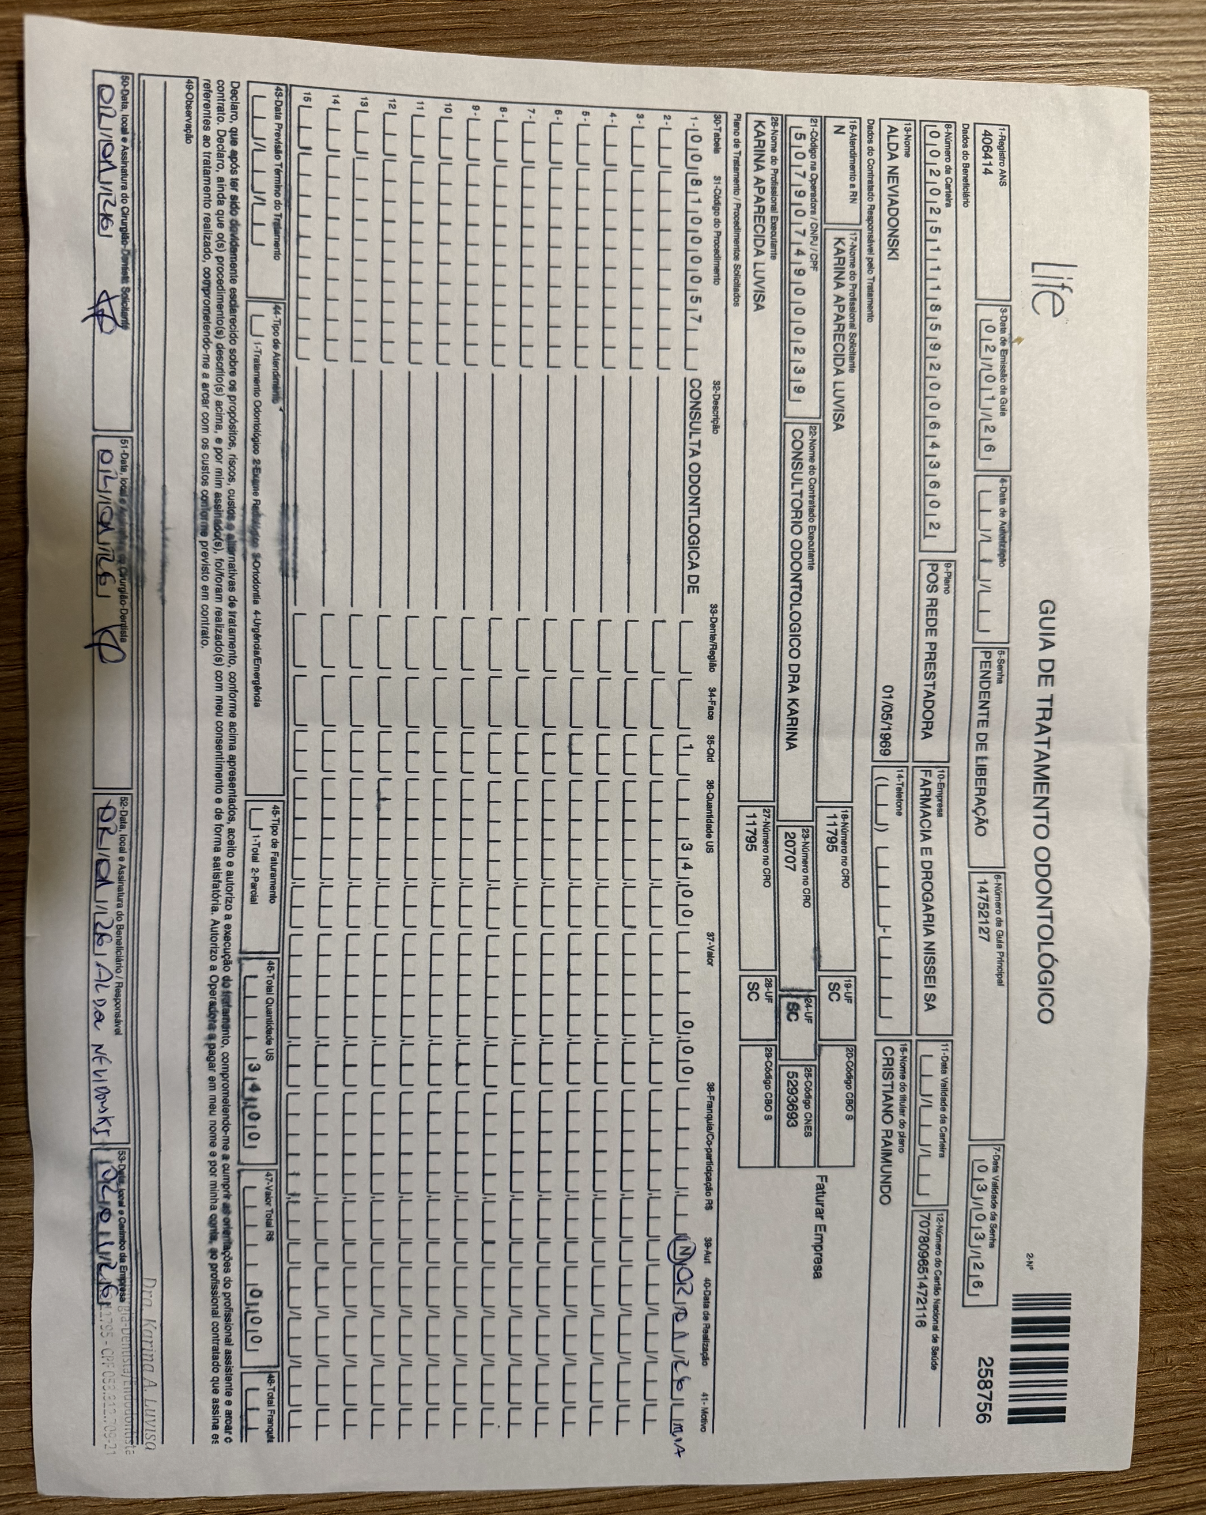 Life
GUIA DE TRATAMENTO ODONTOLÓGICO
2-Nº
258756
1-Registro ANS
406414
3-Data de Emissão da Guia
02/01/26
4-Data de Autorização
5-Senha
PENDENTE DE LIBERAÇÃO
6-Número da Guia Principal
14752127
7-Data Validade da Senha
03/03/26
Dados do Beneficiário
8-Número da Carteira
00202511185920064 3602
9-Plano
POS REDE PRESTADORA
10-Empresa
FARMACIA E DROGARIA NISSEI SA
11-Data Validade da Carteira
12-Número do Cartão Nacional de Saúde
707809651472116
13-Nome
ALDA NEVIADONSKI
01/05/1969
14-Telefone
15-Nome do titular do plano
CRISTIANO RAIMUNDO
Dados do Contratado Responsável pelo Tratamento
16-Atendimento a RN
N
17-Nome do Profissional Solicitante
KARINA APARECIDA LUVISA
18-Número no CRO
11795
19-UF
SC
20-Código CBO S
Faturar Empresa
21-Código na Operadora / CNPJ / CPF
50790749000239
22-Nome do Contratado Executante
CONSULTORIO ODONTOLOGICO DRA KARINA
23-Número no CRO
20707
24-UF
SC
25-Código CNES
5293693
26-Nome do Profissional Executante
KARINA APARECIDA LUVISA
27-Número no CRO
11795
28-UF
SC
29-Código CBO S
Plano de Tratamento / Procedimentos Solicitados
30-Tabela 31-Código do Procedimento 32-Descrição 33-Dente/Região 34-Face 35-Qtd 36-Quantidade US 37-Valor 38-Franquia/Co-participação R$ 39-Aut 40-Data de Realização 41-Motivo
1- 00 81000057 CONSULTA ODONTLOGICA DE 1 34,00 0,00 N 02/01/26
2-
3-
4-
5-
6-
7-
8-
9-
10
11
12
13
14
15
43-Data Previsão Término do Tratamento
44-Tipo de Atendimento
1-Tratamento Odontológico 2-Exame Radiológico 3-Ortodontia 4-Urgência/Emergência
45-Tipo de Faturamento
1-Total 2-Parcial
46-Total Quantidade US
34,00
47-Valor Total R$
0,00
48-Total Franquia
Declaro, que após ter sido devidamente esclarecido sobre os propósitos, riscos, custos e alternativas de tratamento, conforme acima apresentados, aceito e autorizo a execução do tratamento, comprometendo-me a cumprir as orientações do profissional assistente e arcar c
contrato. Declaro, ainda que o(s) procedimento(s) descrito(s) acima, e por mim assinado(s), foi/foram realizado(s) com meu consentimento e de forma satisfatória. Autorizo a Operadora a pagar em meu nome e por minha conta, ao profissional contratado que assina es
referentes ao tratamento realizado, comprometendo-me a arcar com os custos conforme previsto em contrato.
49-Observação
Dra. Karina A. Luvisa
50-Data, local e Assinatura do Cirurgião-Dentista Solicitante
02/01/26
51-Data, local e Assinatura do Cirurgião-Dentista
02/01/26
52-Data, local e Assinatura do Beneficiário / Responsável
02/01/26 Alda Nevidonski
53-Data, local e Carimbo da Empresa
02/01/26